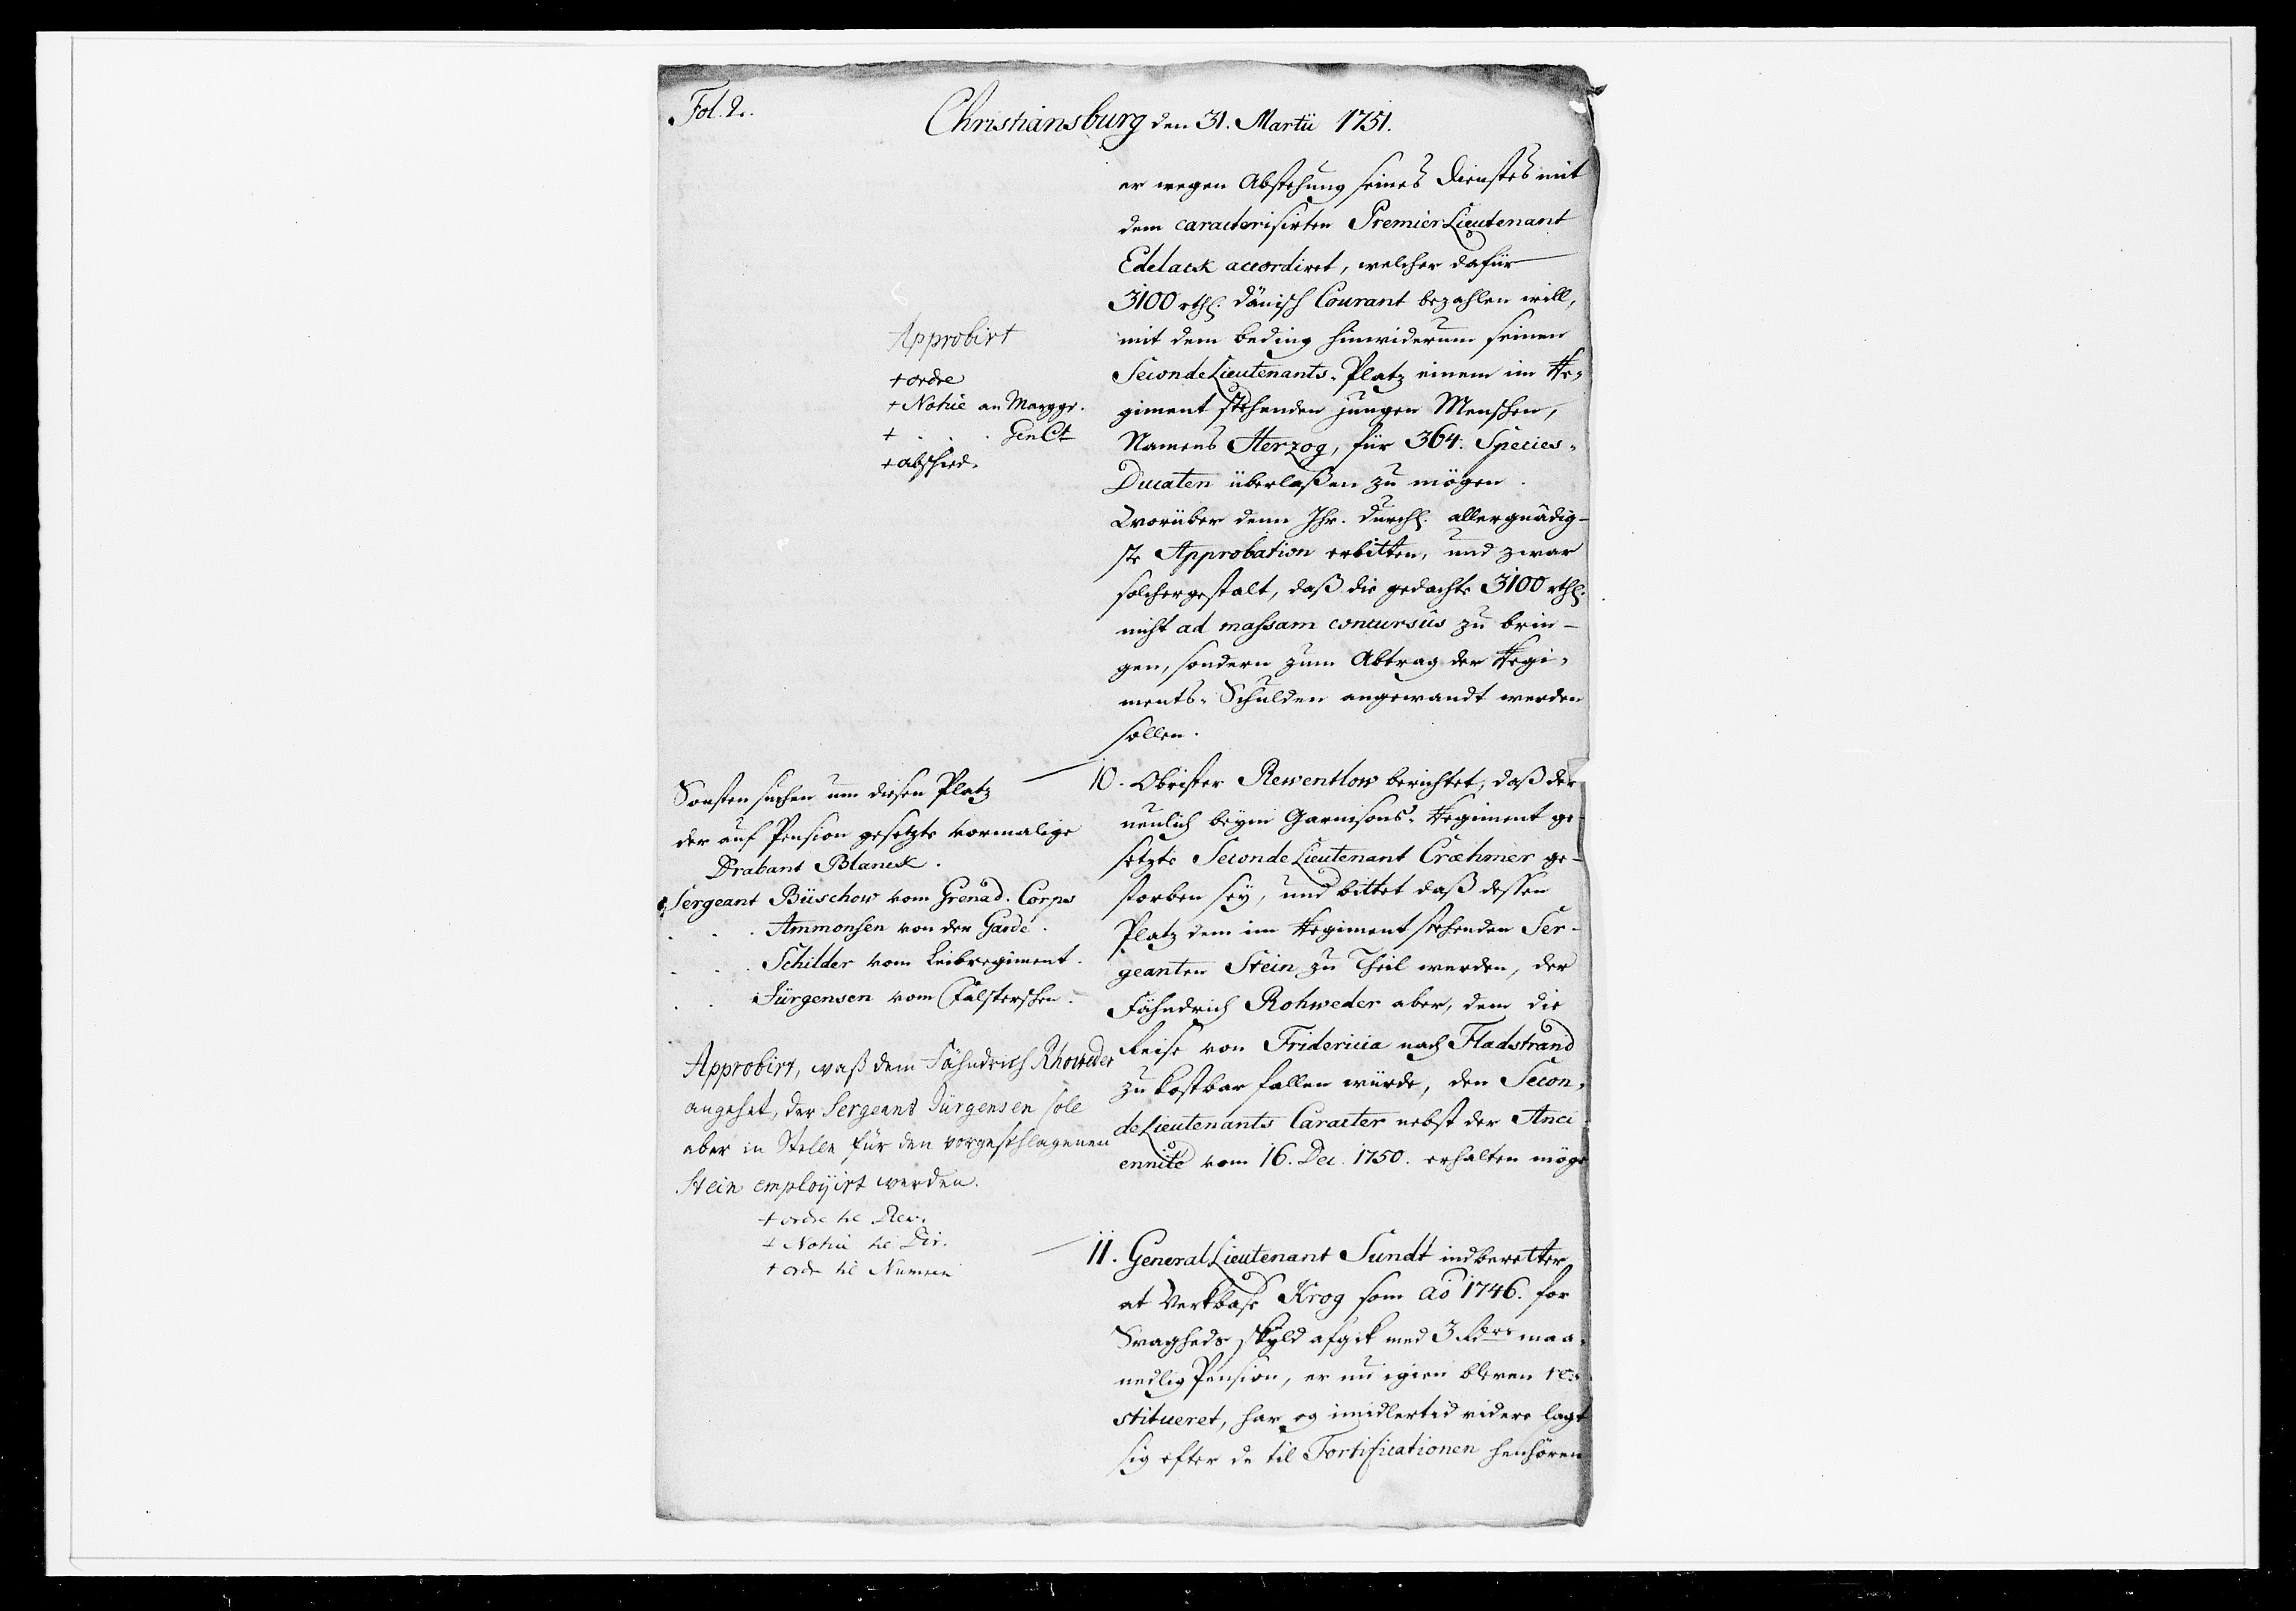 Fol. 2.
Christiansburg den 31. Martii 1751.
er wegen Abstehung seines Dienstes mit
dem caracterisirten PremierLieutenant
Edelack accordiret, welcher dafür
3100 rthl. dänisch Courant bezahlen will,
mit dem beding hinwiderum seinen
SecondeLieutenants-Platz einem im Re-
giment stehenden jungen Menschen,
Namens Herzog, für 364. Species-
Ducaten überlaßen zu mögen.
Worüber denn Ihr. Durchl. allergnädig-
ste Approbation erbitten, und zwar
solchergestalt, daß die gedachte 3100 rthl.
nicht ad massam concursûs zu brin-
gen, sondern zum Abtrag der Regi-
ments-Schulden angewandt werden
sollen.
Approbirt
+ ordre
+ Notice an Marggr.
+ . . . Gen Ct
+ abschied.
10. Obrister Rewentlow berichtet, daß der
neulich beym Garnisons-Regiment ge-
setzte SecondeLieutenant Cræhmer ge-
storben sey, und bittet daß dessen
Platz dem im Regiment stehenden Ser-
geanten Stein zu Theil werden, der
Fähndrich Rohweder aber, dem die
Reise von Fridericia nach Fladstrand
zu kostbar fallen würde, den Secon-
deLieutenants Caracter nebst der Anci-
ennité vom 16. Dec. 1750. erhalten möge
Sonsten suchen um diesen Platz
der auf Pension gesetzte vormalige
Drabant Blanck.
Sergeant Büschow vom Grenad. Corps
. . . Ammonsen von der Garde.
. . . Schilder vom Leibregiment.
. . Jürgensen vom Falsterschen.
Approbirt, waß dem Fähndrich Rhoweder
angehet, der Sergeant Jürgensen sole
aber in Stelle für den vorgeschlagenen
Stein employirt werden.
+ ordre til Rew.
+ Notice til Dir.
+ ordre til Numsen
11. GeneralLieutenant Sundt indberetter
at Verkbase Krog som ao 1746. for
Svagheds skyld afgik med 3 Rdrs maa-
nedlig Pension, er nu igien bleven re-
stitueret, har og imidlertid videre lagt
sig efter de til Fortificationen henhören